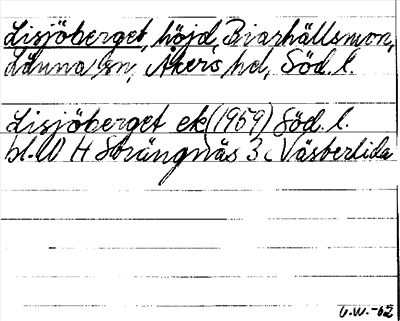 Lisjöberget, höjd, Biarhällsmon,
Länna sn, Åkers hd, Söd. l.
Lisjöberget ek (1959) Söd. l.
bl. 10 H Strängnäs 3 c Väsberlida
G.W.-62